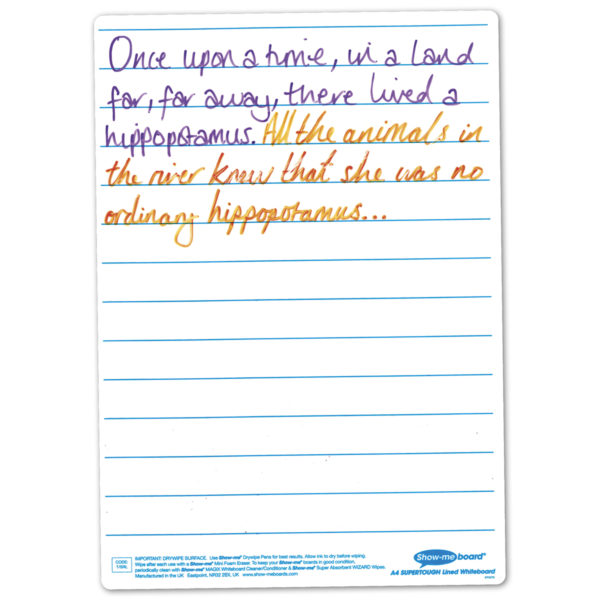 Once upon a time, in a land
far, far away, there lived a
hippopotamus. All the animals in
the river knew that she was no
ordinary hippopotamus...
IMPORTANT: DRYWIPE SURFACE. Use Show-me® Drywipe Pens for best results. Allow ink to dry before wiping.
Wipe after each use with a Show-me® Mini Foam Eraser. To keep your Show-me® boards in good condition,
periodically clean with Show-me® MAGIX Whiteboard Cleaner/Conditioner & Show-me® Super Absorbent WIZARD Wipes.
Manufactured in the UK Eastpoint, NR02 2BX, UK www.show-meboards.com
CODE
Show-me board®
A4 SUPERTOUGH Lined Whiteboard